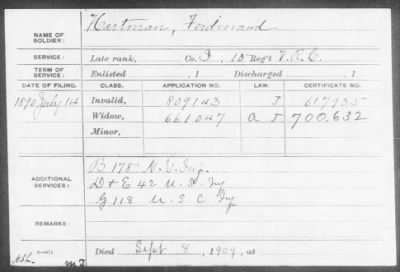 NAME OF SOLDIER: Hartman, Ferdinand
SERVICE: Late rank, Co. I, 15 Reg't V.R.C.
TERM OF SERVICE: Enlisted , 1 Discharged , 1
DATE OF FILING. CLASS. APPLICATION NO. LAW. CERTIFICATE NO.
1890 July 14 Invalid, 809143 J 617935
Widow, 661047 a J 700.632
Minor,
B 178" N.Y. Inf.
ADDITIONAL SERVICES: D + E 42 U.S. Inf
G 118 U.S.C. Inf
REMARKS:
Died Sept 8, 1909, at